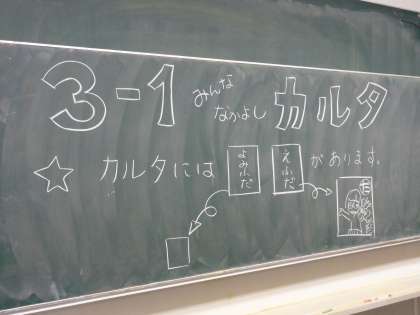 3-1 みんな
なかよし カルタ
☆ カルタには よみふだ えふだ があります。